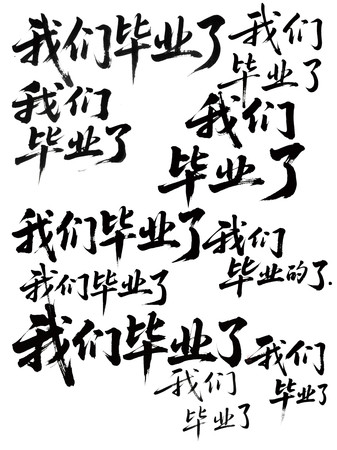 我们毕业了
我们
毕业了
我们
毕业了
我们
毕业了
我们毕业了
我们
毕业的了.
我们毕业了
我们毕业了
我们
毕业了
我们
毕业了